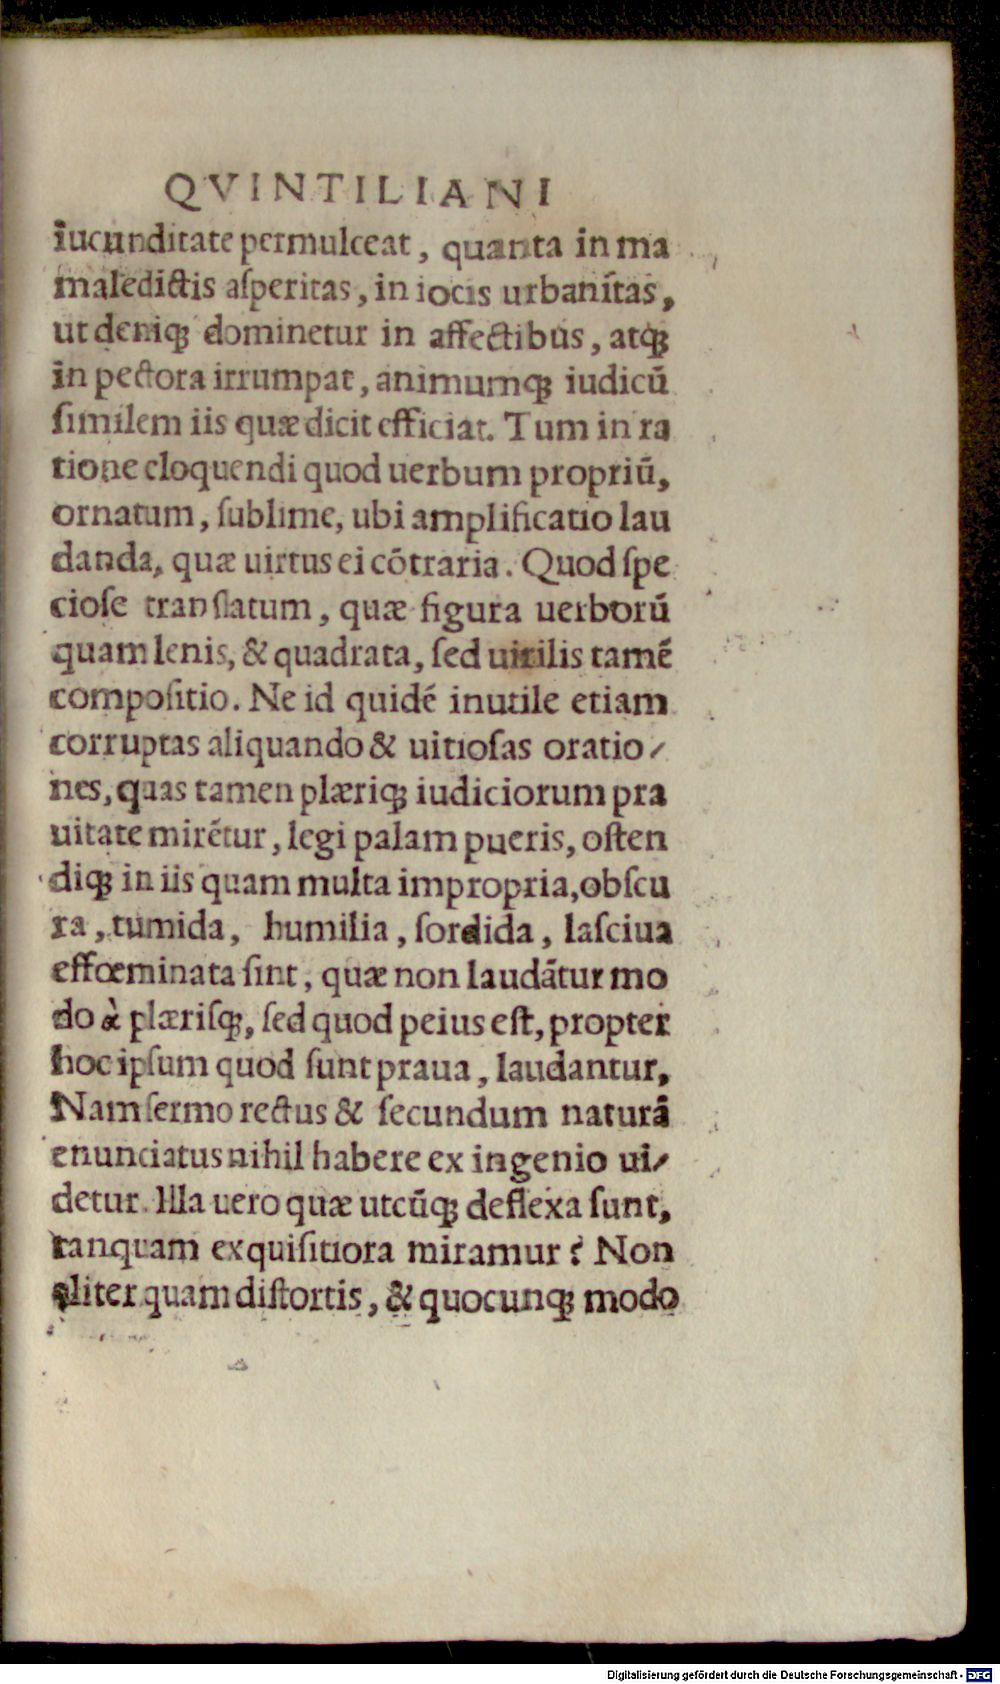 QVINTILIANI
iucunditate permulceat, quanta in ma
maledictis aſperitas, in iocis urbanĩtas,
ut deniqꝫ dominetur in affectibus, atqꝫ
in pectora irrumpat, animumqꝫ iudicũ
ſimilem iis quæ dicit efficiat. Tum in ra
tione eloquendi quod uerbum propriũ,
ornatum, ſublime, ubi amplificatio lau
danda, quæ uirtus ei cõtraria. Quod ſpe
cioſe tranſlatum, quæ figura uerborũ
quam lenis, & quadrata, ſed uirilis tamẽ
compoſitio. Ne id quidẽ inutile etiam
corruptas aliquando & uitioſas oratio⸗
nes, quas tamen plæriqꝫ iudiciorum pra
uitate mirẽtur, legi palam pueris, oſten
diqꝫ in iis quam multa impropria, obſcu
ra, tumida, humilia, ſordida, laſciua
effœminata ſint, quæ non laudãtur mo
do à plæriſqꝫ, ſed quod peius eſt, propter
hoc ipſum quod ſunt praua, laudantur,
Nam ſermo rectus & ſecundum naturã
enunciatus nihil habere ex ingenio ui⸗
detur. Illa uero quæ utcũqꝫ deflexa ſunt,
tanquam exquiſitiora miramur? Non
aliter quam diſtortis, & quocunqꝫ modo
Digitalisierung gefördert durch die Deutsche Forschungsgemeinschaft - DFG